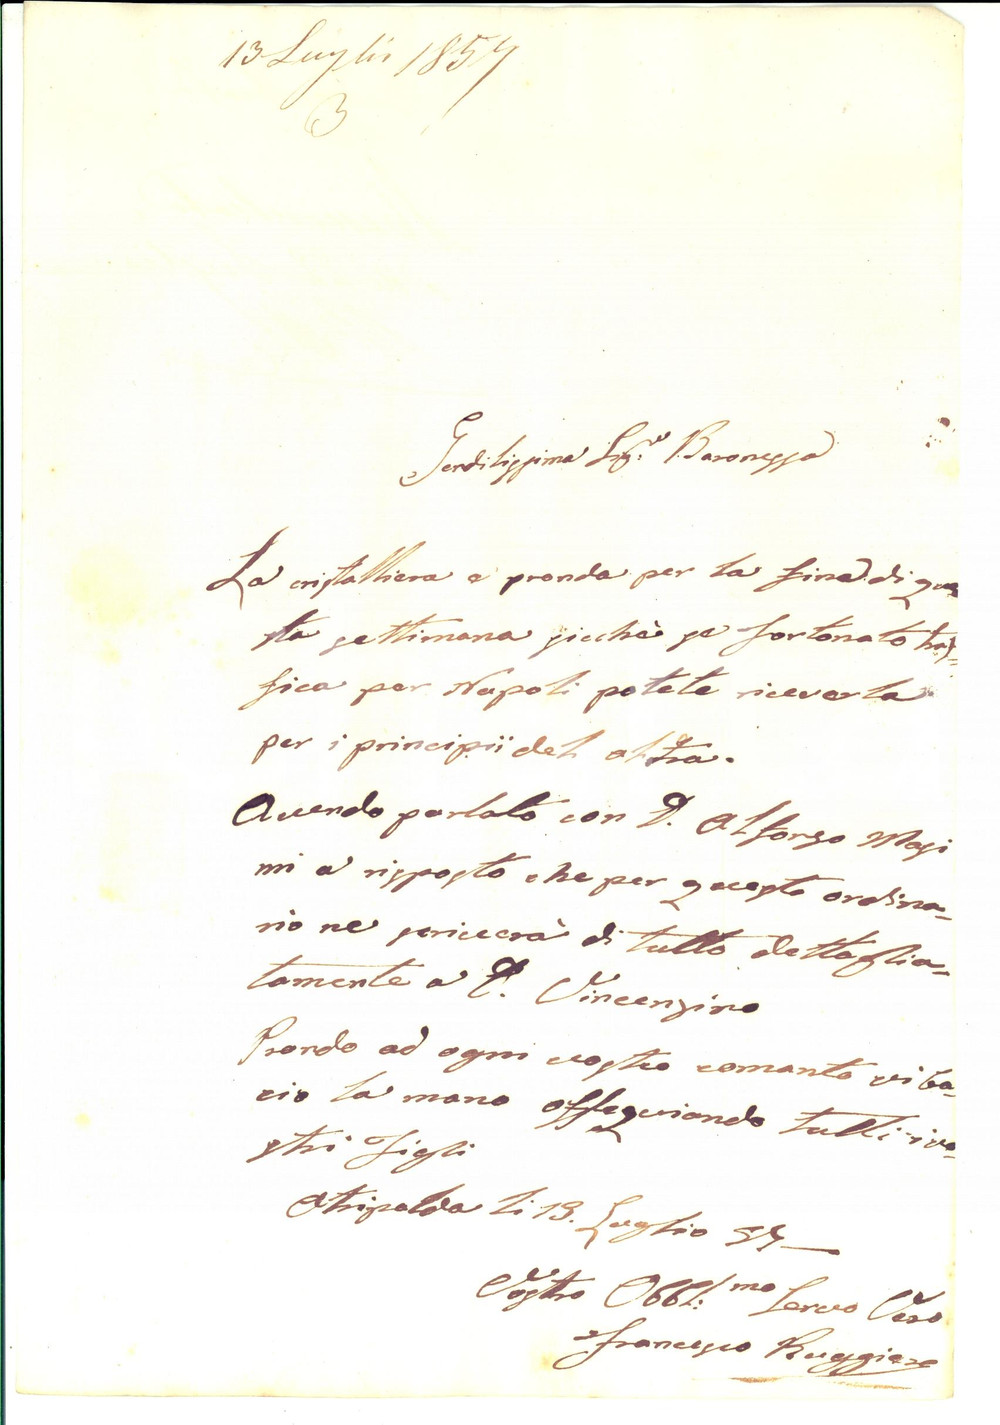 13 Luglio 1857
3
Gendilissima Sig.ra Baronessa
La cristalliera e pronda per la fine di que
sta settimana sicchè se fortonato traf=
fica per Napoli potete riceverla
per i principii del altra.
Avendo parlato con D. Alfonzo Masi
mi a risposto che per questo ordina=
rio ne scriverà di tutto dettaglia=
tamente a D. Vincenzino
Prondo ad ogni vostro comanto vi ba=
cio la mano ossequiando tutti i vo=
stri figli
Atripalda li 13. Luglio 57
Vostro Obbl:mo Servo Vero
Francesco Ruggiero